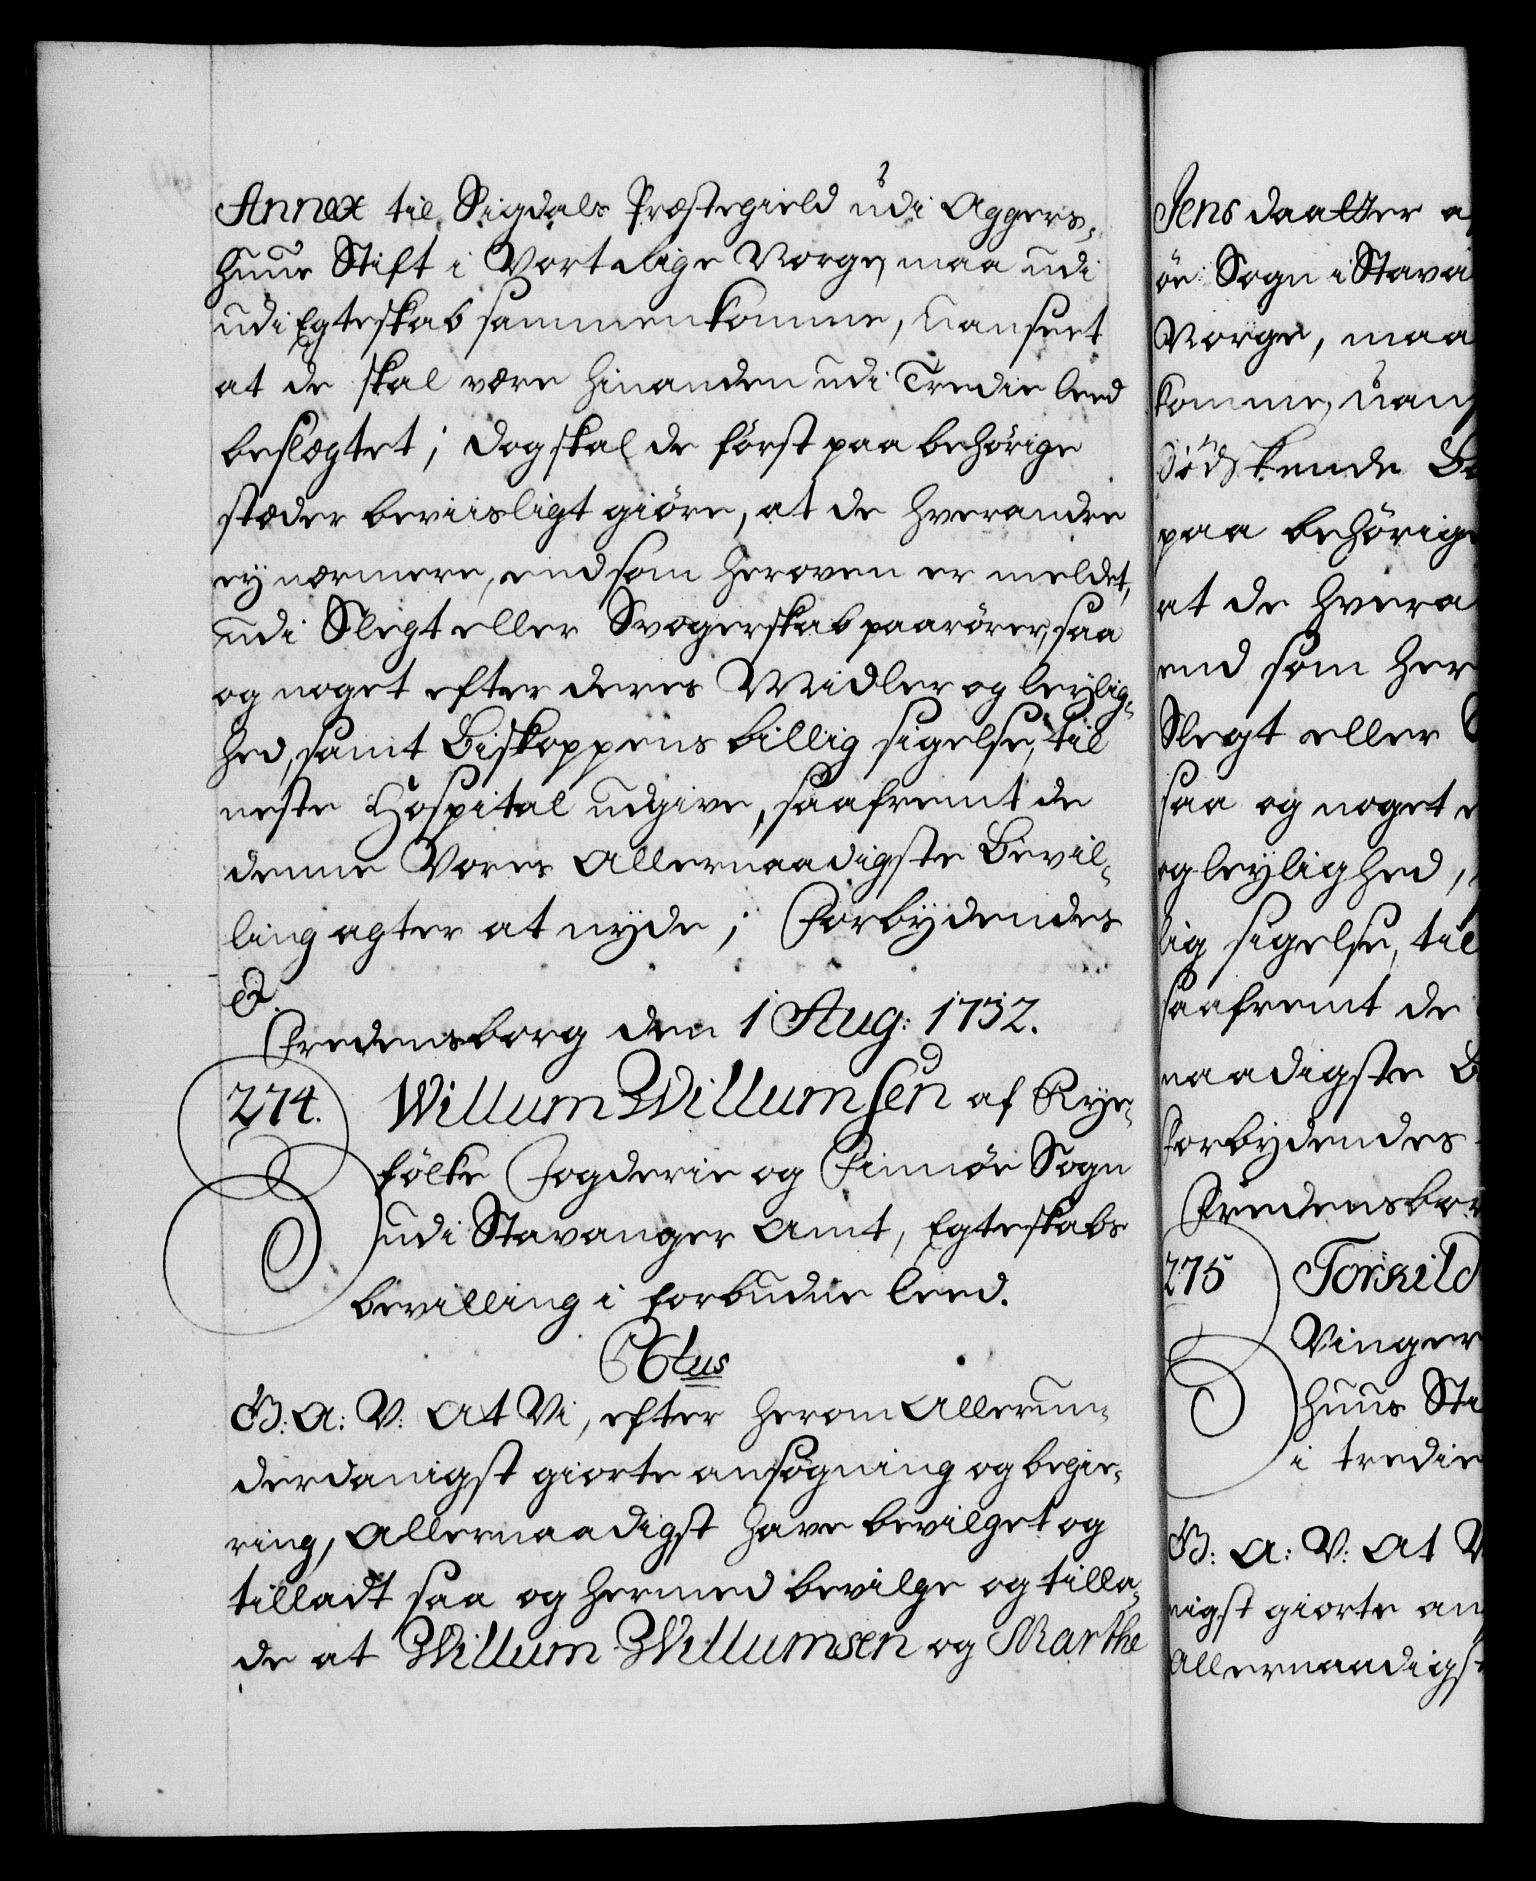 Annex til Sigdals Præstegield udi Aggers-
huus Stift i Vort Rige Norge, maa udi
udi Egteskab sammenkomme, uanseet
at de skal være hinanden udi Tredie leed
beslægtet; dog skal de först paa behörige
stæder beviisligt giöre, at de hverandre
ey nærmere, end som heroven er meldet,
udi Slegt eller Svogerskab paarörer, saa
og noget efter deres Midler og leylig-
hed, samt Biskoppens billig sigelse, til
neste Hospital udgive, saafremt de
denne Vores Allernaadigste Bevil-
ling agter at nyde; Forbydendes
&.
Fredensborg den 1 Aug: 1732.
274. Willum Willumsen af Rye-
fölke Fogderie og Finnöe Sogn
udi Stavanger Amt, Egteskabs
bevilling i forbudne leed.
G: A: V: At Vi, efter herom Allerun-
derdanigst giorte ansögning og begie-
ring, Allernaadigst have bevilget og
tilladt saa og hermed bevilge og tilla-
de at Willum Willumsen og Marthe
Jens daatter a
öe Sogn i Stava
Norge, maa
komme, uans
Södskende B
paa behörige
at de hvera
end som her
Slegt eller S
saa og noget e
og leylighed,
lig sigelse, til
saafremt de
naadigste B
Forbydendes
Fredensbor
275 Torkild
Vinger
huus Sti
i tredie
G: A: V: At V
nigst giorte an
Allernaadigst